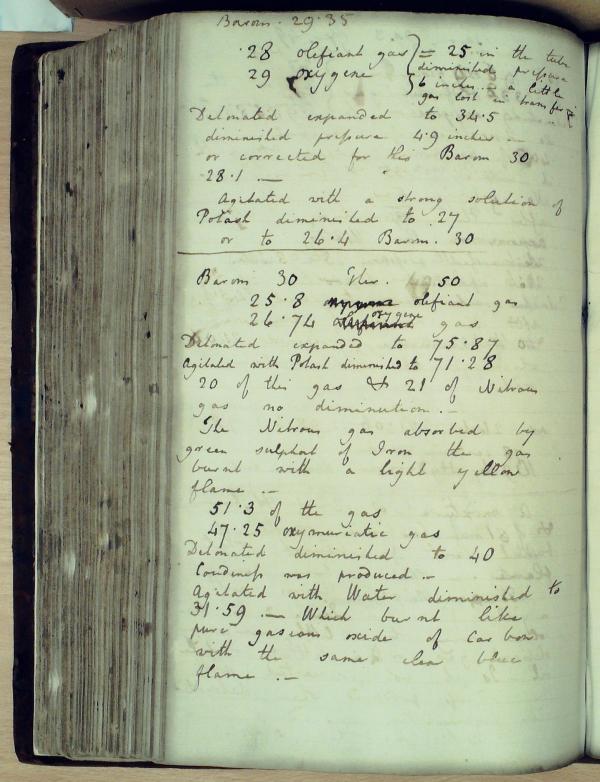 Barom. 29.35
.28 olefiant gas } = 25 in the tube
29 oxygene } diminished pressure
6 inches — a little
gas lost in transfer
Detonated expanded to 34.5
diminished pressure 4.9 inches —
or corrected for this Barom 30
28.1 —
Agitated with a strong solution of
Potash diminished to 27
or to 26.4 Barom. 30
Barom 30 Ther. 50
25.8 olefiant gas
26.74 oxygene gas
Detonated expanded to 75.87
Agitated with Potash diminished to 71.28
20 of this gas & 21 of Nitrous
gas no diminution. —
The Nitrous gas absorbed by
green sulphat of Iron the gas
burnt with a light yellow
flame —
51.3 of the gas
47.25 oxymuriatic gas
Detonated diminished to 40
Cloudiness was produced —
Agitated with Water diminished to
31.59 — Which burnt like
pure gaseous oxide of Carbon
with the same clear blue
flame —